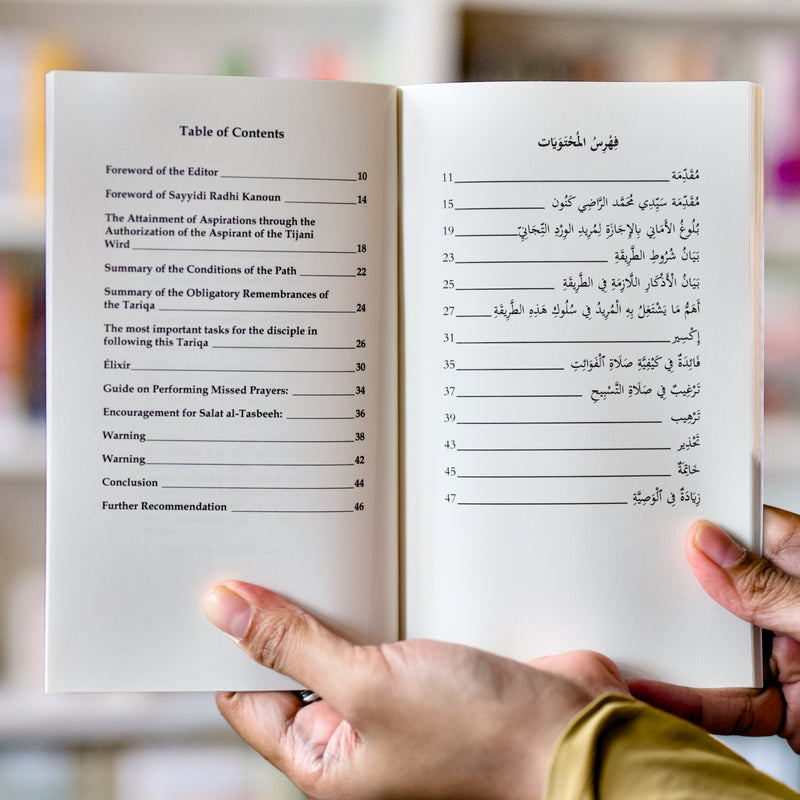 Table of Contents
Foreword of the Editor 10
Foreword of Sayyidi Radhi Kanoun 14
The Attainment of Aspirations through the
Authorization of the Aspirant of the Tijani
Wird 18
Summary of the Conditions of the Path 22
Summary of the Obligatory Remembrances of
the Tariqa 24
The most important tasks for the disciple in
following this Tariqa 26
Élixir 30
Guide on Performing Missed Prayers: 34
Encouragement for Salat al-Tasbeeh: 36
Warning 38
Warning 42
Conclusion 44
Further Recommendation 46
فِهْرِسُ المُحْتَوَيَات
مُقَدِّمَة 11
مُقَدِّمَة سَيِّدِي مُحَمَّد الرَّاضِي كَنُون 15
بُلُوغُ الأَمَانِي بِالإِجَازَةِ لِمُرِيدِ الوِرْدِ التِّجَانِيِّ 19
بَيَانُ شُرُوطِ الطَّرِيقَةِ 23
بَيَانُ الْأَذْكَارِ اللَّازِمَةِ فِي الطَّرِيقَةِ 25
أَهَمُّ مَا يَشْتَغِلُ بِهِ الْمُرِيدُ فِي سُلُوكِ هَذِهِ الطَّرِيقَةِ 27
إِكْسِير 31
فَائِدَةٌ فِي كَيْفِيَّةِ صَلَاةِ ٱلْفَوَائِتِ 35
تَرْغِيبٌ فِي صَلَاةِ التَّسْبِيحِ 37
تَرْهِيب 39
تَحْذِير 43
خَاتِمَةٌ 45
زِيَادَةٌ فِي ٱلْوَصِيَّةِ 47